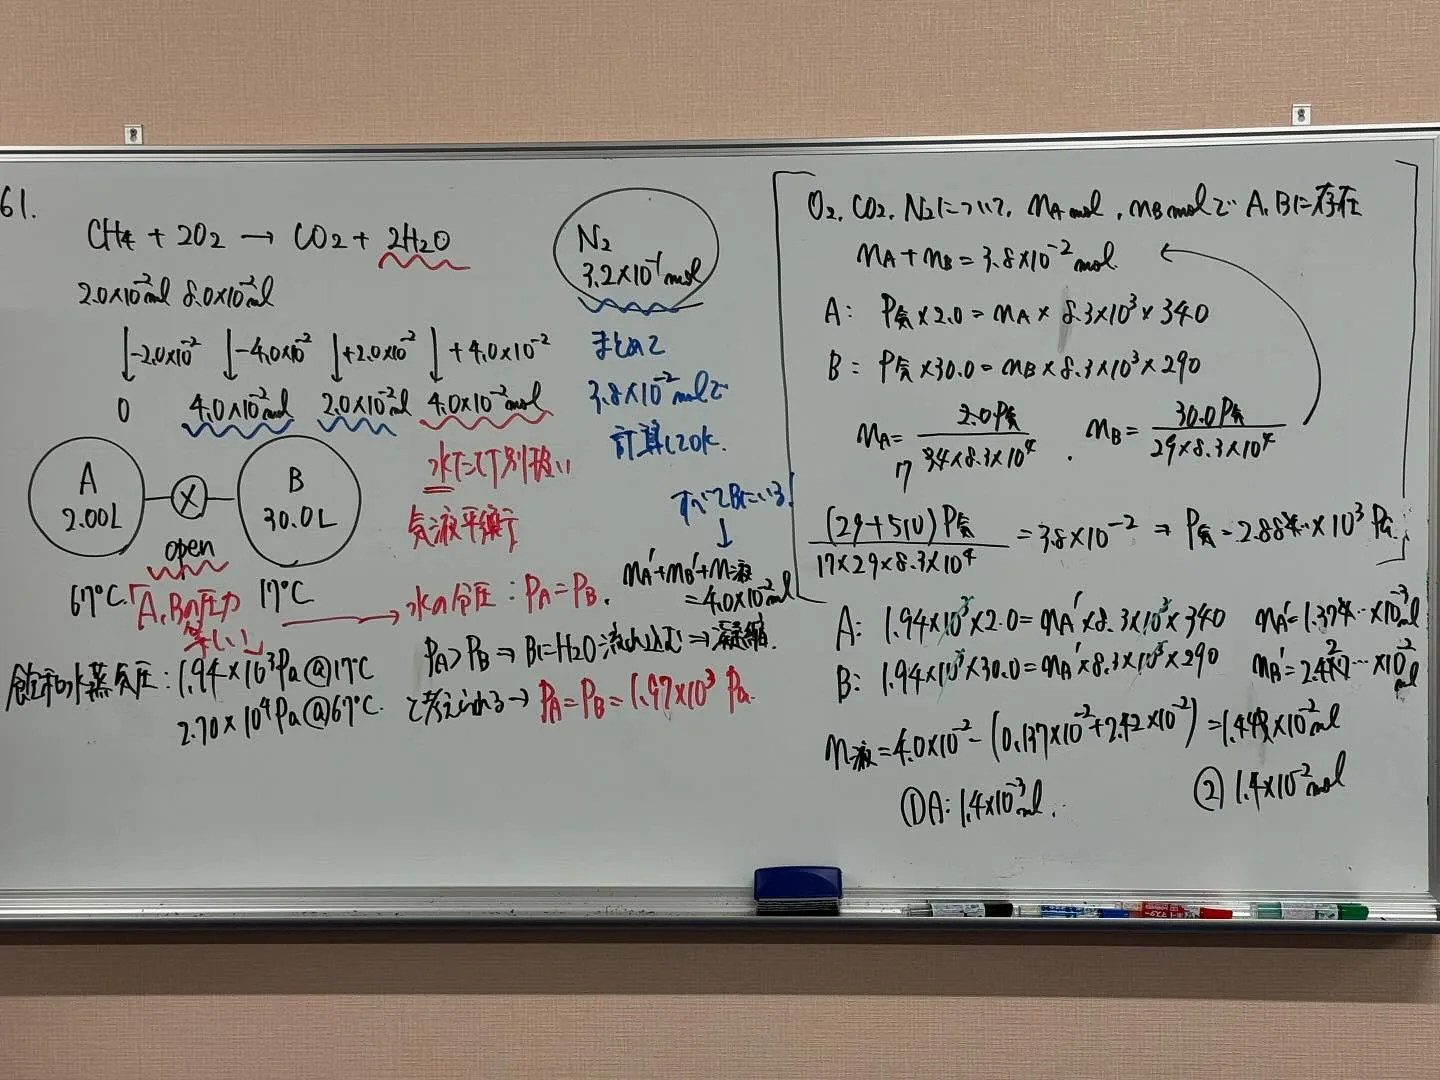 61.
CH4 + 2O2 → CO2 + 2H2O
2.0×10⁻²mol 8.0×10⁻²mol
↓-2.0×10⁻² ↓-4.0×10⁻² ↓+2.0×10⁻² ↓+4.0×10⁻²
0 4.0×10⁻²mol 2.0×10⁻²mol 4.0×10⁻²mol
N2
3.2×10⁻¹mol
まとめて
3.8×10⁻²molで
計算してOK.
水だけ別扱い
気液平衡
A
2.00L
B
30.0L
open
67℃.
17℃
「A,Bの圧力
等しい」
→ 水の分圧:PA=PB.
すべてBにいる!
↓
nA'+nB'+n液
=4.0×10⁻²mol
PA>PB ⇒ BにH2O流れ込む⇒凝縮.
と考えられる→ PA=PB=1.97×10³ Pa.
飽和水蒸気圧:1.94×10³Pa@17℃
2.70×10⁴Pa@67℃.
O2, CO2, N2について, nA mol, nB molで A,Bに存在
nA+nB=3.8×10⁻²mol
A: P気×2.0=nA×8.3×10³×340
B: P気×30.0=nB×8.3×10³×290
nA= 2.0P気 / 34×8.3×10⁴ . nB= 30.0P気 / 29×8.3×10⁴
17
(29+510)P気 / 17×29×8.3×10⁴ =3.8×10⁻² ⇒ P気=2.88…×10³ Pa.
A: 1.94×10³×2.0=nA'×8.3×10³×340 nA'=1.37…×10⁻³mol
B: 1.94×10³×30.0=nA'×8.3×10³×290 nB'=2.42…×10⁻²mol
n液=4.0×10⁻²-(0.137×10⁻²+2.42×10⁻²)=1.44×10⁻²mol
①A:1.4×10⁻³mol.
②1.4×10⁻²mol